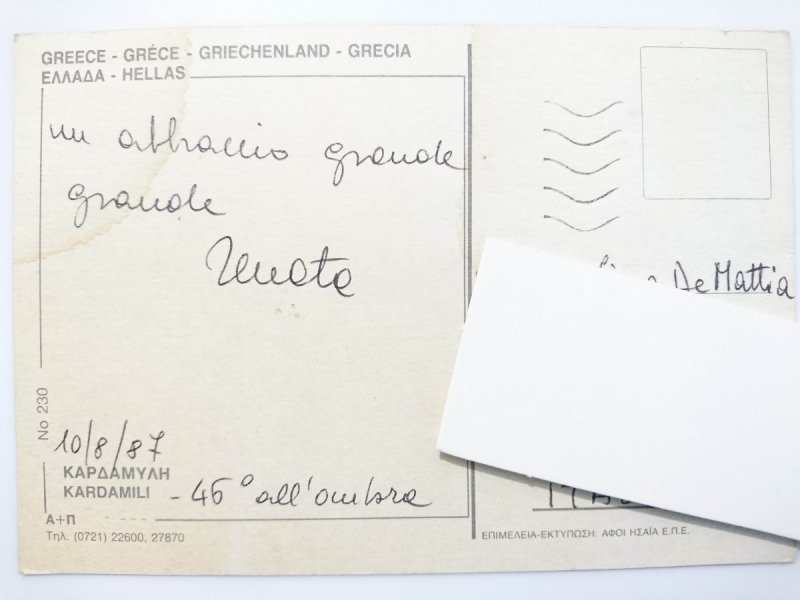 GREECE - GRÉCE - GRIECHENLAND - GRECIA
ΕΛΛΑΔΑ - HELLAS
un abbraccio grande
grande
Renata
De Mattia
No 230
10/8/87
ΚΑΡΔΑΜΥΛΗ
KARDAMILI - 46° all'ombra
Α+Π
Τηλ. (0721) 22600, 27870
ΕΠΙΜΕΛΕΙΑ-ΕΚΤΥΠΩΣΗ: ΑΦΟΙ ΗΣΑΪΑ Ε.Π.Ε.